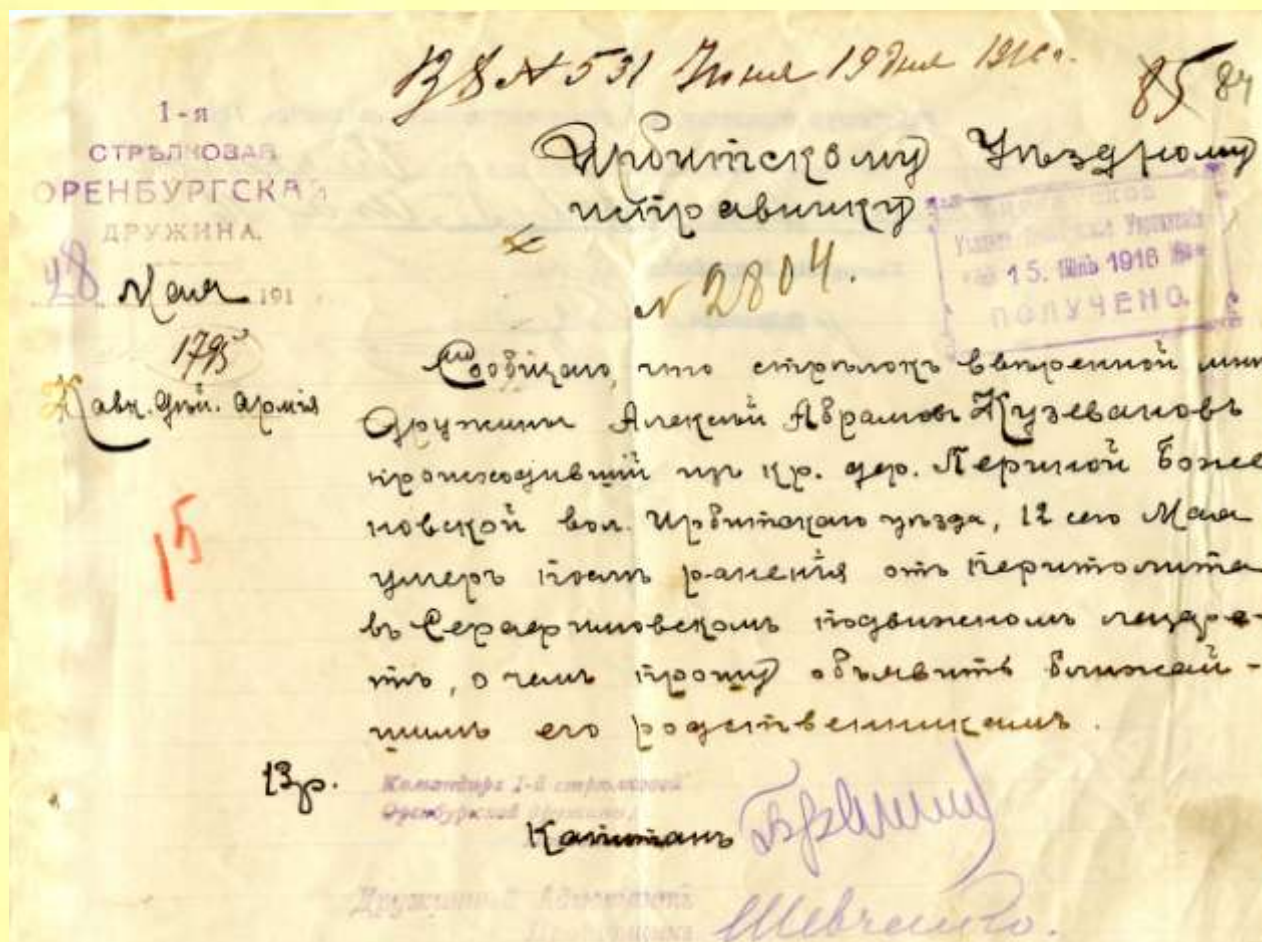 В8 № 531 Июня 19 дня 1916 г.
85 84
1-я
СТРѢЛКОВАЯ
ОРЕНБУРГСКАЯ
ДРУЖИНА.
28 Мая 191
1795
Кавк. Дѣй. Армія
15
Ирбитскому Уѣздному
исправнику
№ 2804.
15. ІЮНЬ 1916
ПОЛУЧЕНО
Сообщаю, что стрѣлокъ ввѣренной мнѣ
Дружины Алексѣй Аврамовъ Кузевановъ
происходившій изъ кр. дер. Першной Боже
новской вол. Ирбитскаго уѣзда, 12 сего Мая
умеръ послѣ раненія отъ перитонита
въ Серафимовскомъ подвижномъ лазаре-
тѣ, о чемъ прошу объявить ближай-
шимъ его родственникамъ.
13 р.
Командиръ 1-й стрѣлковой
Оренбургской дружины,
Капитанъ
Дружинный Адъютантъ
Прапорщикъ Шевченко.